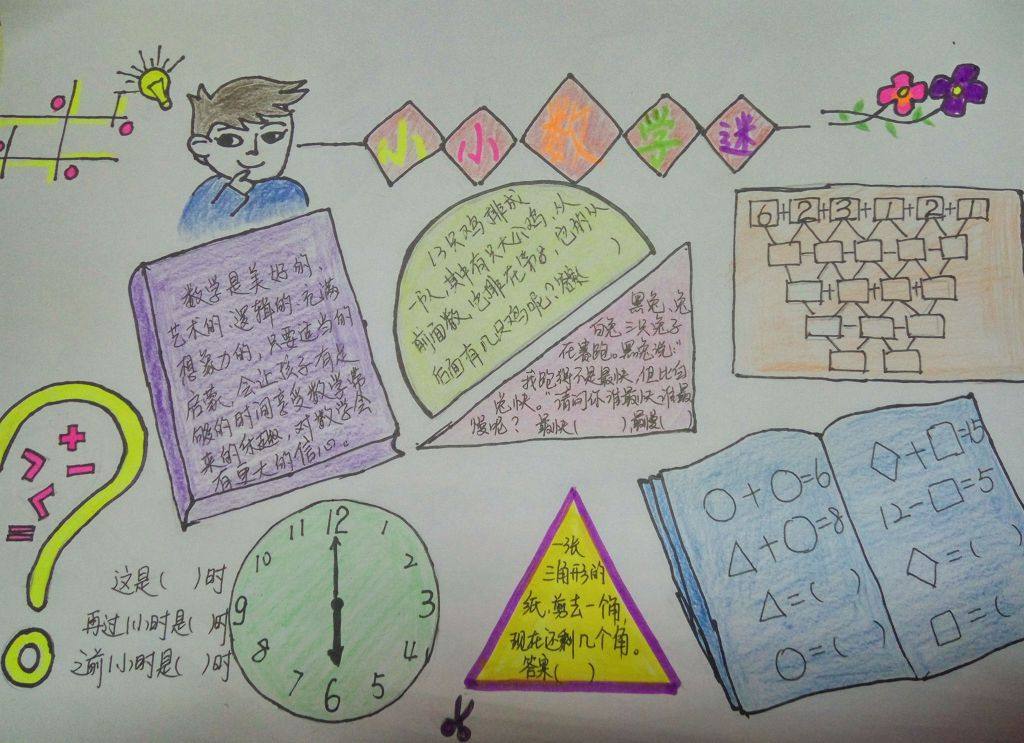 小小数学迷
数学是美好的、
艺术的、逻辑的、充满
想象力的,只要适当的
启蒙,会让孩子有足
够的时间享受数学带
来的乐趣,对数学会
有更大的信心.
13只鸡排成
一队,其中有只大公鸡,从
前面数,它排在第8,它的从
后面有几只鸡呢?答(    )
黑兔、兔
白兔三只兔子
在赛跑。黑兔说:“
我跑得不是最快,但比白
兔快。”请问你谁最快谁最
慢呢? 最快(    )最慢(
6+2+3+1+2+1
- - - -
+ + +
- -
○+○=6
△+○=8
△=(  )
○=(  )
◇+□=15
12-□=5
◇=(  )
□=(
+
> -
<
=
12
11 1
10 2
9 3
8 4
7 5
6
这是(  )时
再过1小时是(  )时
之前1小时是(  )时
一张
三角形的
纸,剪去一个角,
现在还剩几个角。
答案(  )